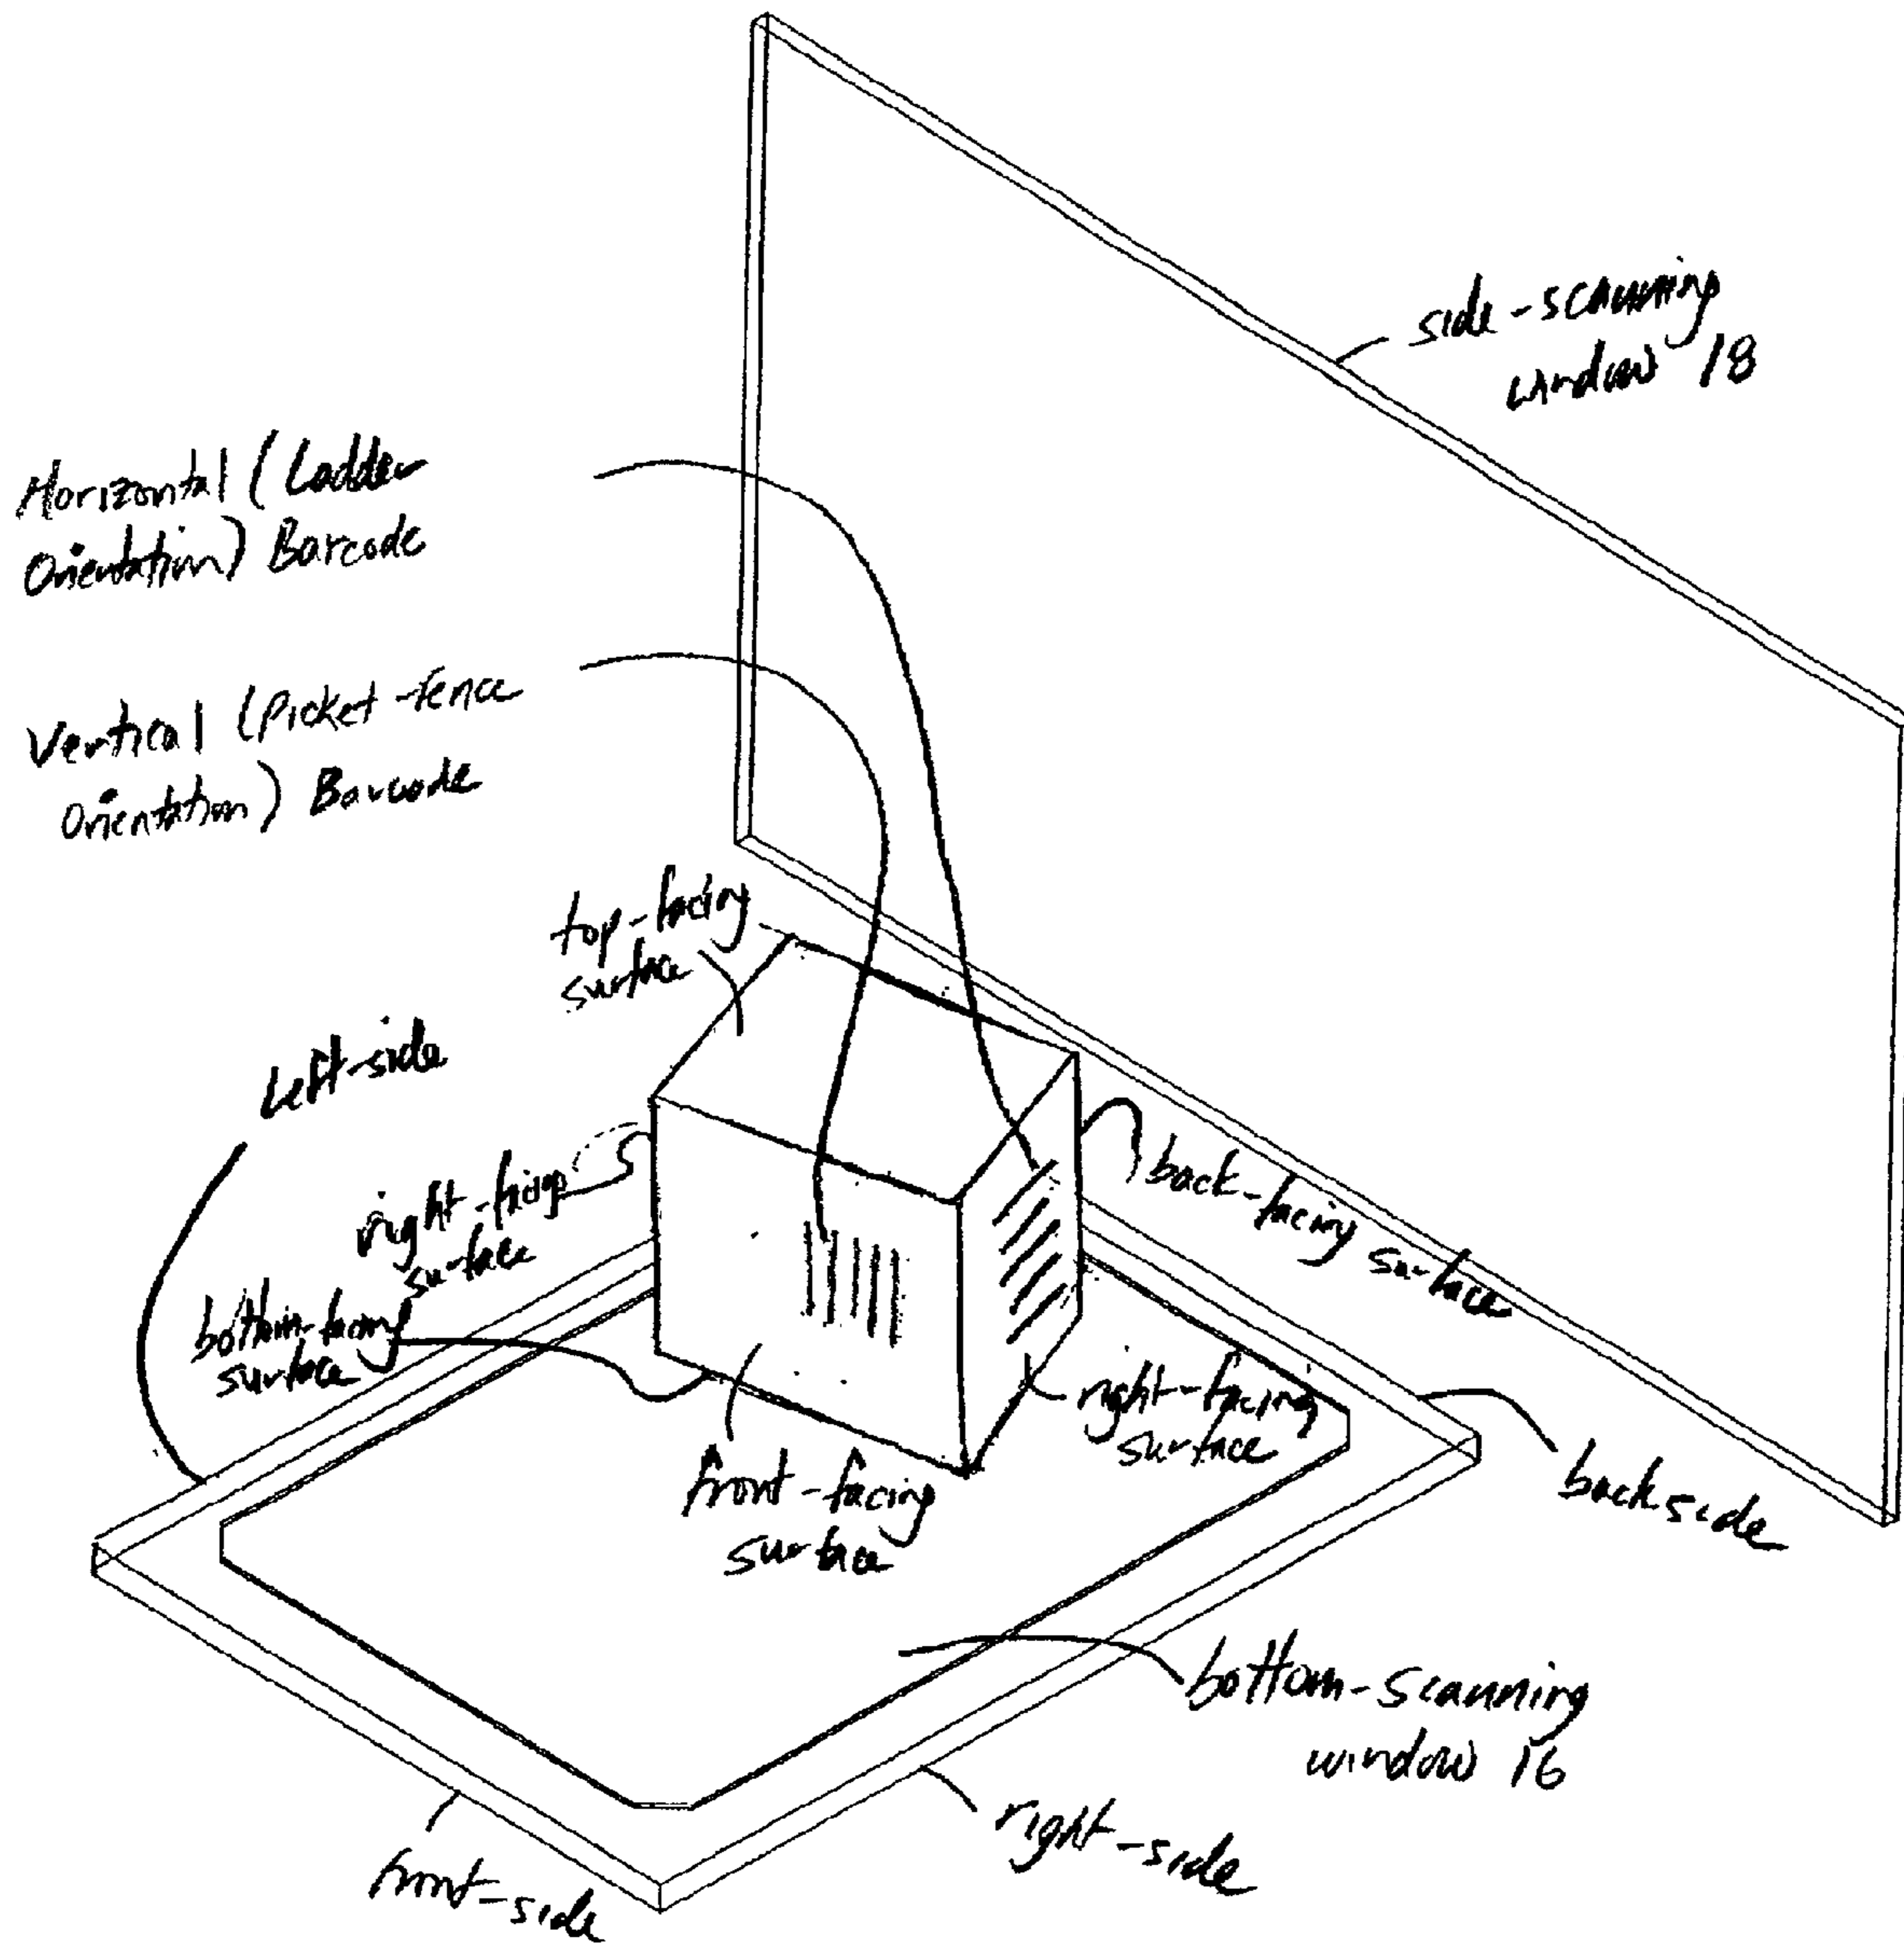 side-scanning
window 18
Horizontal (Ladder
Orientation) Barcode
Vertical (Picket-fence
Orientation) Barcode
top-facing
surface
Left-side
right-facing
surface
back-facing surface
bottom-facing
surface
right-facing
surface
front-facing
surface
backside
bottom-scanning
window 16
right-side
front-side